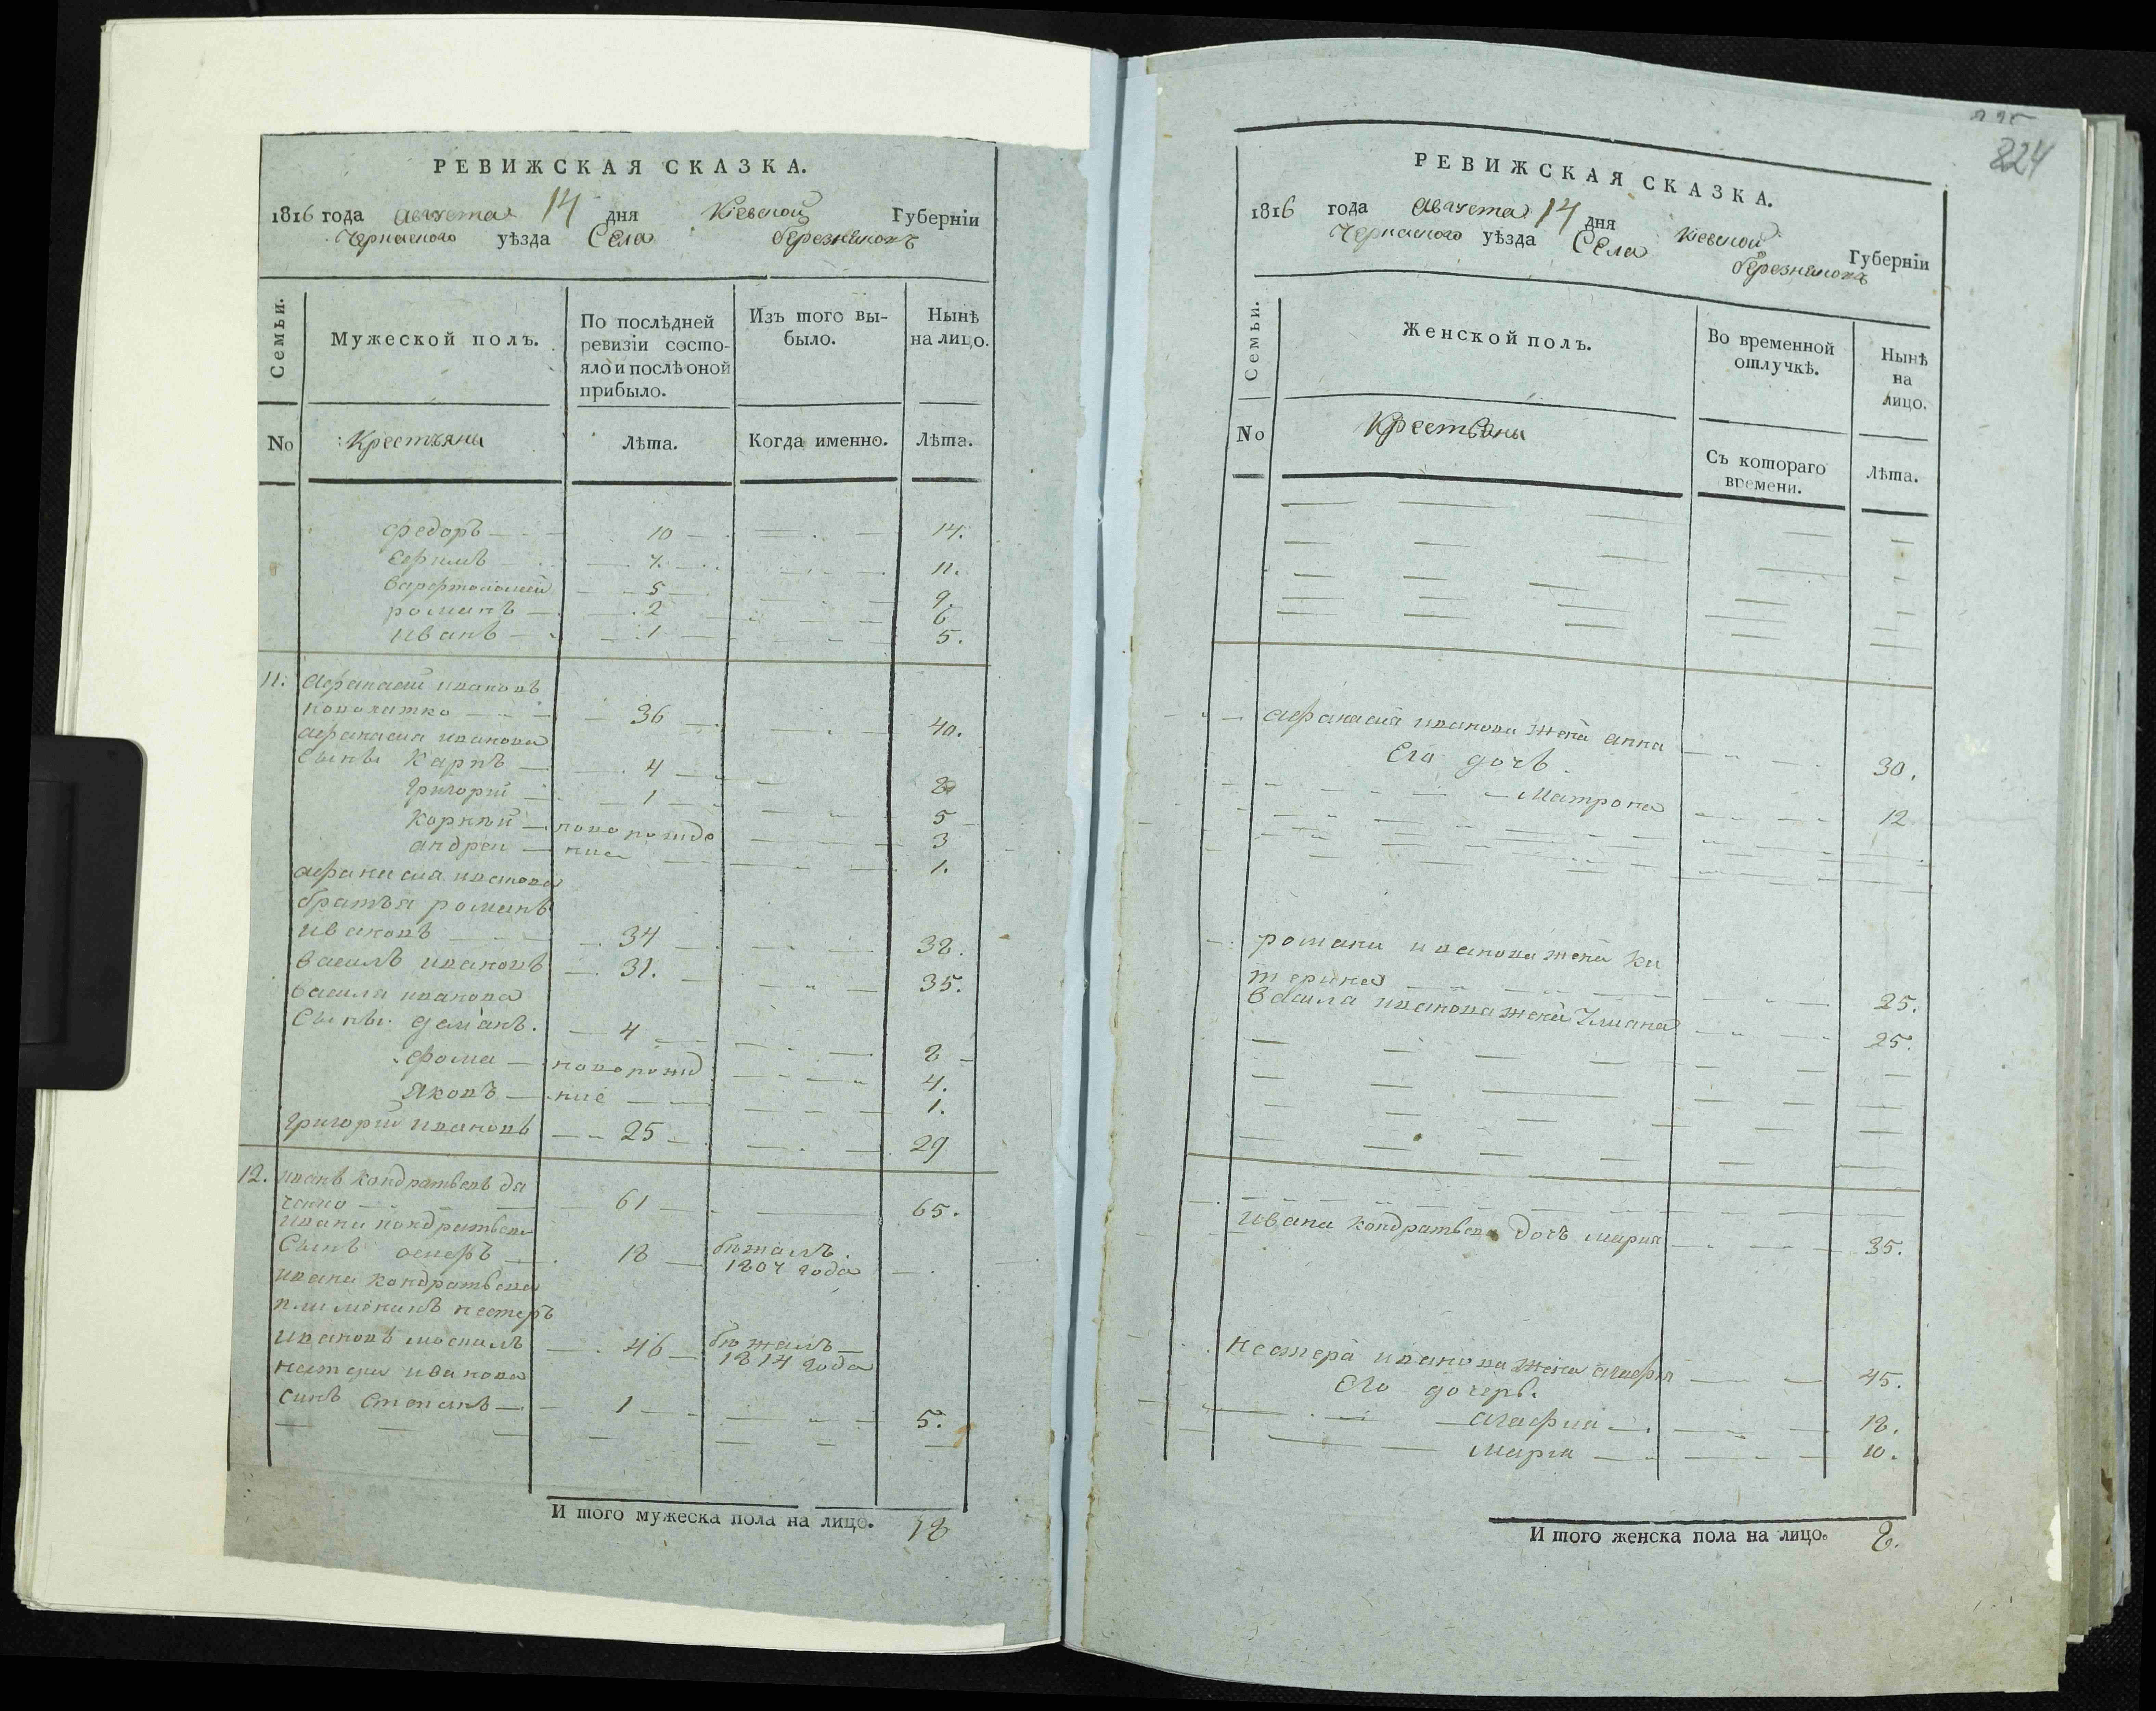 РЕВИЖСКАЯ СКАЗКА.
1816 года августа 14 дня Кіевской Губерніи
Черкаского уѣзда Села березняковъ
Семьи.
Мужеской полъ.
По послѣдней
ревизіи состо-
яло и послѣ оной
прибыло.
Изъ того вы-
было.
Нынѣ
на лицо.
No
Крестьяны
Лѣта.
Когда именно.
Лѣта.
федоръ 10 14.
Ефимъ 7. 11.
варфтоломей 5 9.
романъ 2 6
иванъ 1 5.
11. Афанасий ивановъ
36 40.
афанасия иванова
сынъ Карпъ 4 8
Григорий 1 5
Корнѣй новорожде 3
андрей ние 1.
афанасия иванова
братья романъ
ивановъ 34 38.
василь ивановъ 31. 35.
василя иванова
Сынъ демянъ. 4 8
фома новорожд 4.
Яковъ ние 1.
Григорий ивановъ 25 29
12. иванъ Кондратьевъ
61 65.
ивана кондратьева
Сынъ 18 бежалъ.
1807 года
ивана кондратьева
племеникъ нестеръ
ивановъ 46 бежалъ
1814 года
нестера иванова
синъ Степанъ 1 5.
И того мужеска пола на лицо. 18
224
РЕВИЖСКАЯ СКАЗКА.
1816 года августа 14 дня Кіевской Губерніи
Черкаского уѣзда Села березняковъ
Семьи.
Женской полъ.
Во временной
отлучкѣ.
Нынѣ
на
лицо.
No
Крестьяны
Съ котораго
времени.
Лѣта.
афанасия иванова жена анна 30.
Его дочь
Матрона 12
романа иванова жена Ка
терина 25.
василя иванова жена 25.
ивана Кондратьева дочь мария 35.
нестера иванова жена агафия 45.
Его дочерь.
агафия 18.
мария 10.
И того женска пола на лицо. 8.